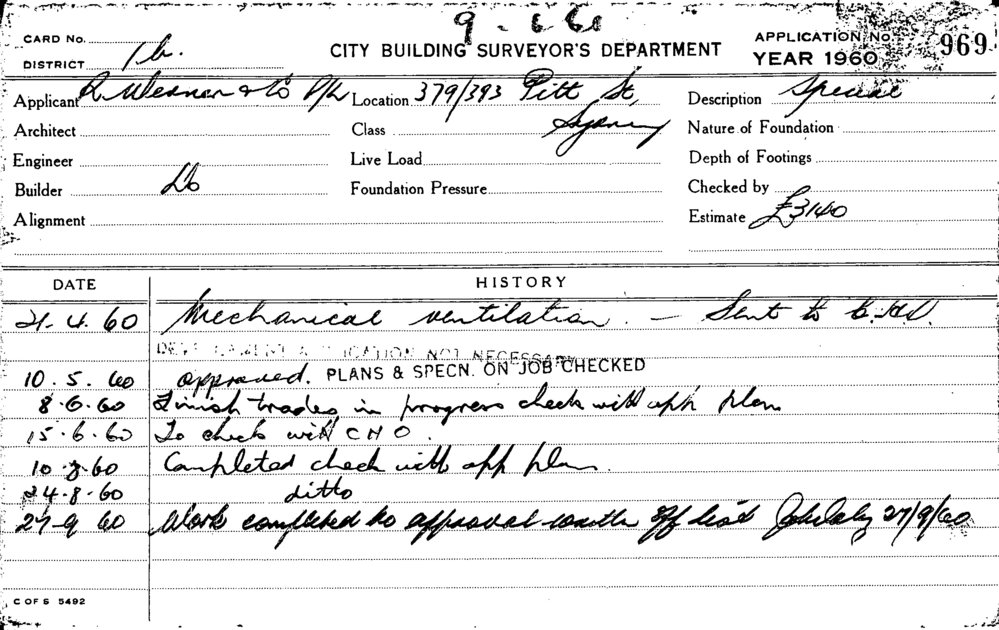 9 - 6 60
CARD No.
CITY BUILDING SURVEYOR'S DEPARTMENT
APPLICATION No. 969
DISTRICT 1b.
YEAR 1960
Applicant R. Werner & Co P/L Location 379/393 Pitt St, Description Special
Architect Class Sydney Nature of Foundation
Engineer Live Load Depth of Footings
Builder Do Foundation Pressure Checked by
Alignment Estimate £3140
DATE HISTORY
21. 4. 60 Mechanical ventilation. - Sent to C.H.O.
NOT NECESSARY
10. 5. 60 approved. PLANS & SPECN. ON JOB CHECKED
8.6.60 Finish trades in progress check with app plan
15.6.60 To check with CHO.
10.8.60 Completed check with app plan.
24.8.60 ditto
27-9 60 Work completed to approval 27/9/60
C OF S 5492